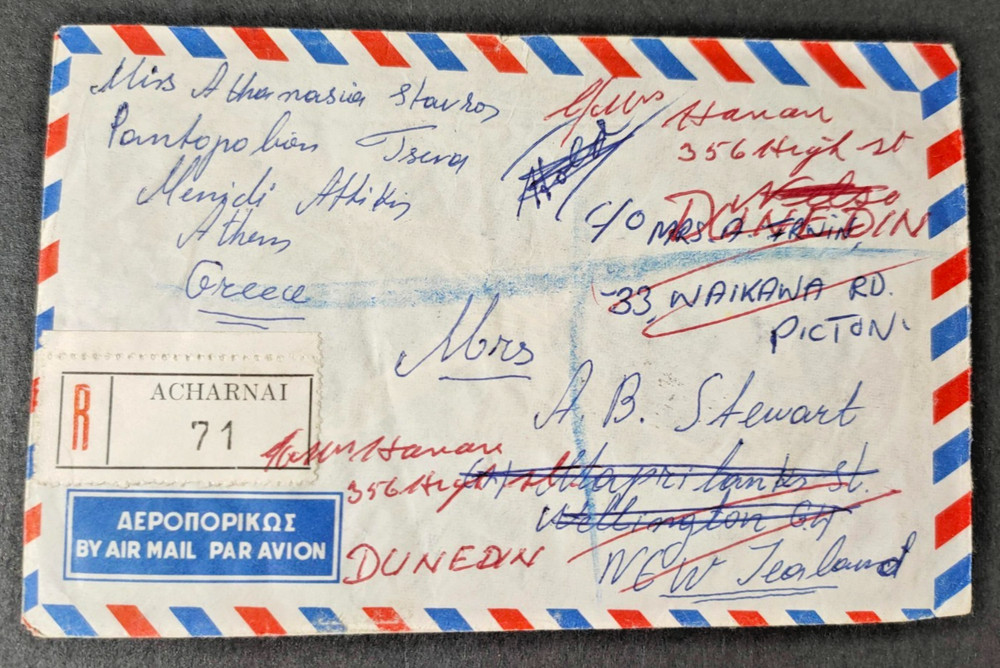 Miss Athanasia Stavros
Pantopolion Tsina
Menidi Attikis
Athens
Greece
c/o Mrs Hanan
356 High st
DUNEDIN
Hold
C/O MRS. A. IRWIN,
33, WAIKAWA RD.
PICTON.
Mrs
A B. Stewart
St.
Wellington
New Zealand
R
ACHARNAI
71
c/o Mrs Hanan
356 High st
DUNEDIN
ΑΕΡΟΠΟΡΙΚΩΣ
BY AIR MAIL PAR AVION